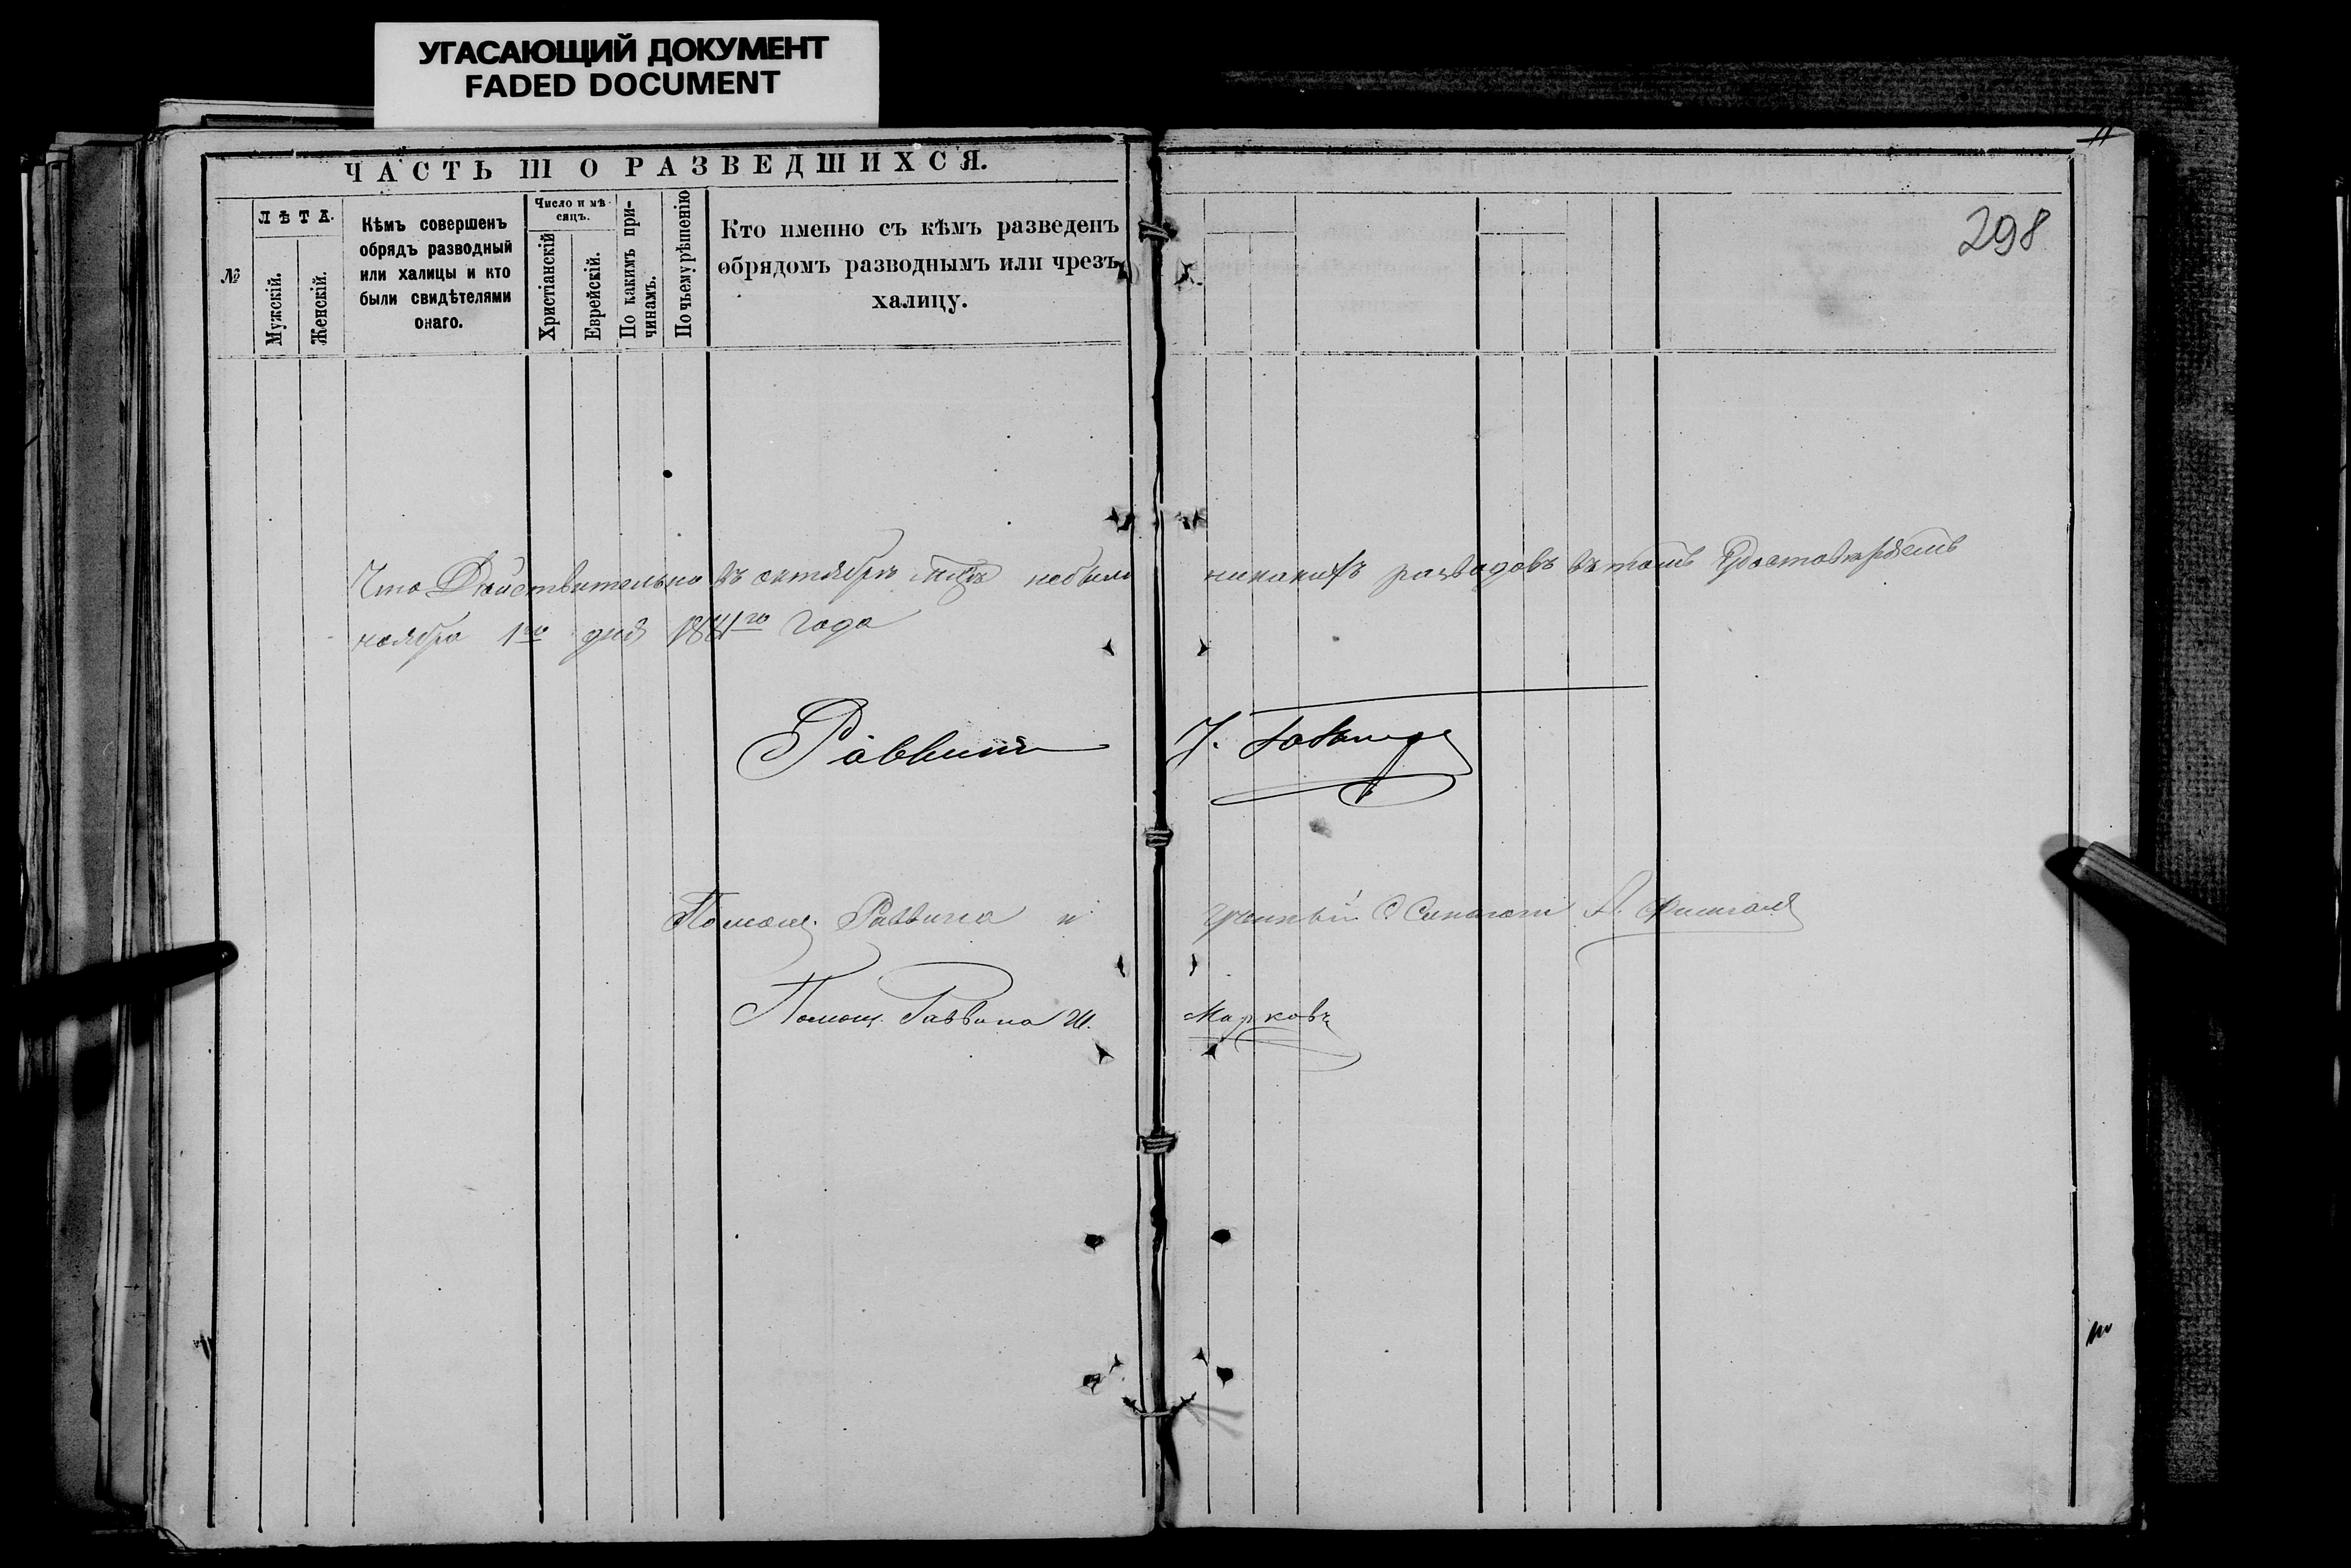 УГАСАЮЩИЙ ДОКУМЕНТ
FADED DOCUMENT
ЧАСТЬ III О РАЗВЕДШИХСЯ.
№
ЛѢТА.
Мужскій.
Женскій.
Кѣмъ совершенъ
обрядъ разводный
или халицы и кто
были свидѣтелями
онаго.
Число и мѣ-
сяцъ.
Христіанскій
Еврейскій.
По какимъ при-
чинамъ.
По чьему рѣшенію
Кто именно съ кѣмъ разведенъ
обрядомъ разводнымъ или чрезъ
халицу.
298
Что Дѣйствительно въ октябрѣ небыло никакихъ разводовъ въ томъ
ноября 1го дня 1881го года
Раввинъ
Помощ. Раввина и Ученный
Помощ. Раввина Ш. Марковъ